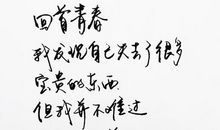 回首青春
我发现自己失去了很多
宝贵的东西
但我并不难过